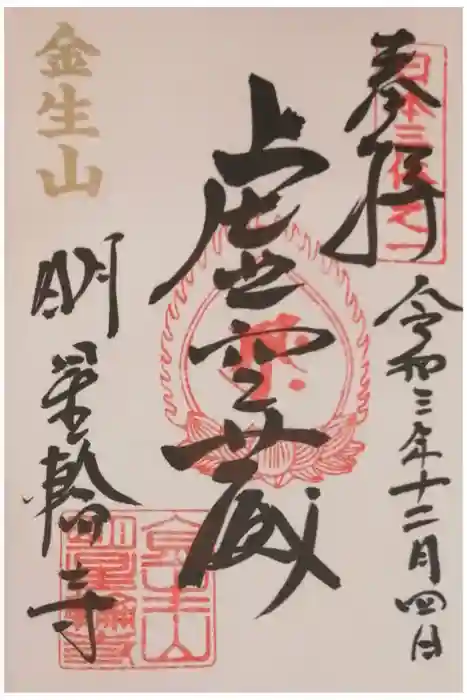 奉拝
日本三体之一
令和三年十二月四日
虚空蔵
金生山
明星輪寺
金生山
明星輪寺